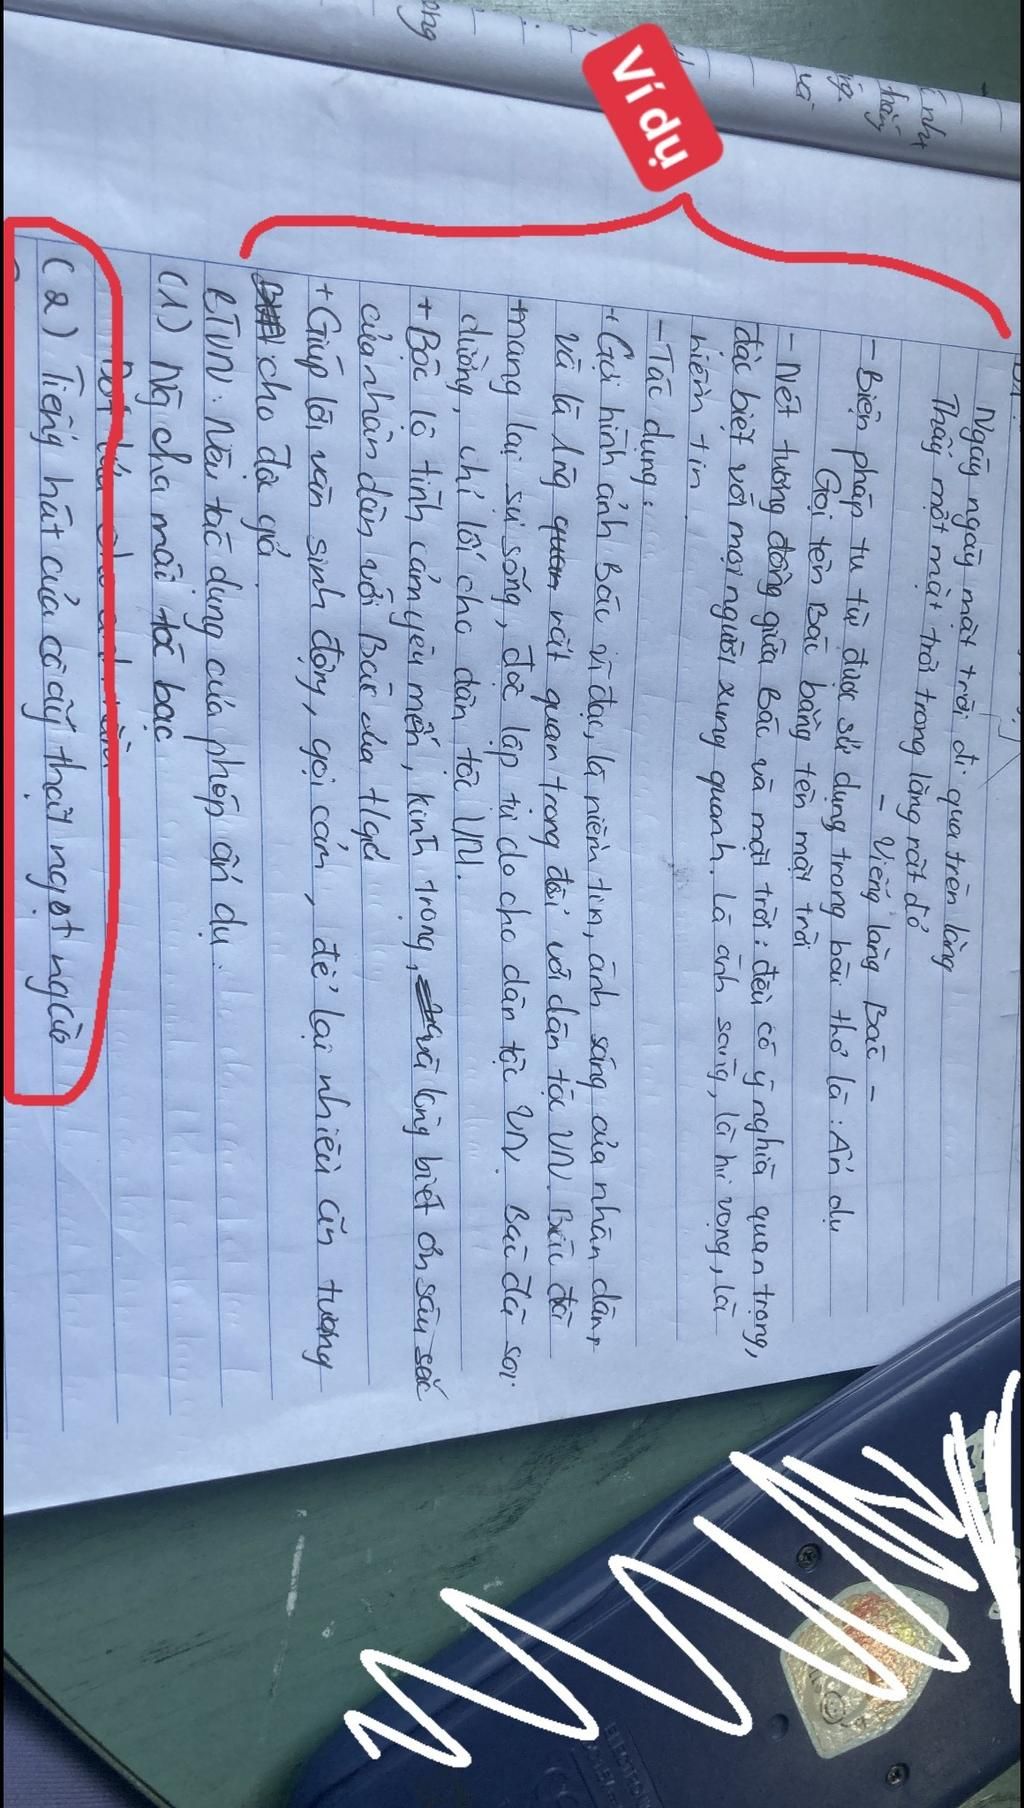 Ví dụ
Ngày ngày mặt trời đi qua trên lăng
Thấy một mặt trời trong lăng rất đỏ
- Viếng lăng Bác -
- Biện pháp tu từ được sử dụng trong bài thơ là: Ẩn dụ
Gọi tên Bác bằng tên mặt trời
- Nét tương đồng giữa Bác và mặt trời: đều có ý nghĩa quan trọng,
đặc biệt với mọi người xung quanh. Là ánh sáng, là hi vọng, là
niềm tin
- Tác dụng:
+ Gợi hình ảnh Bác vĩ đại, là niềm tin, ánh sáng của nhân dân,
Và là quan trọng đối với dân tộc VN. Bác đã
mang lại sự sống, độc lập tự do cho dân tộc VN. Bác đã soi
đường, chỉ lối cho dân tộc VN.
+ Bộc lộ tình cảm yêu mến, kính trọng, và lòng biết ơn sâu sắc
của nhân dân với Bác của tlgiả
+ Giúp lời văn sinh động, gợi cảm, để lại nhiều ấn tượng
cho độc giả.
BTVN: Nêu tác dụng của phép ẩn dụ.
(1) Ng cha mái tóc bạc
Đốt lửa cho anh nằm
(2) Tiếng hát của cô ấy thật ngọt ngào